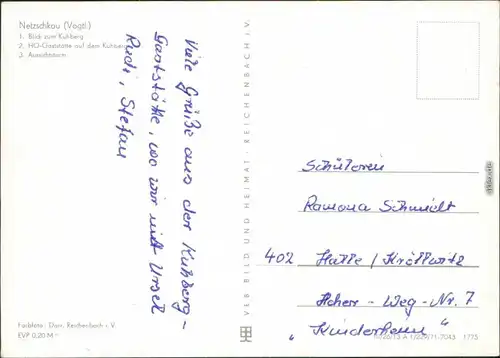 Netzschkau (Vogtl.)
1. Blick zum Kuhberg
2. HO-Gaststätte auf dem Kuhberg
3. Aussichtsturm
Viele Grüße aus der Kuhberg-
Gaststätte, wo wir mit Ursel
Rudi, Stefan
Farbfotos: Darr, Reichenbach i. V.
EVP 0,20 M
VEB BILD UND HEIMAT · REICHENBACH i. V.
Schülerin
Ramona Schmidt
402 Halle / Kröllwitz
Acher - Weg - Nr. 7
"Kinderheim"
A 1/229/71-7045 1775